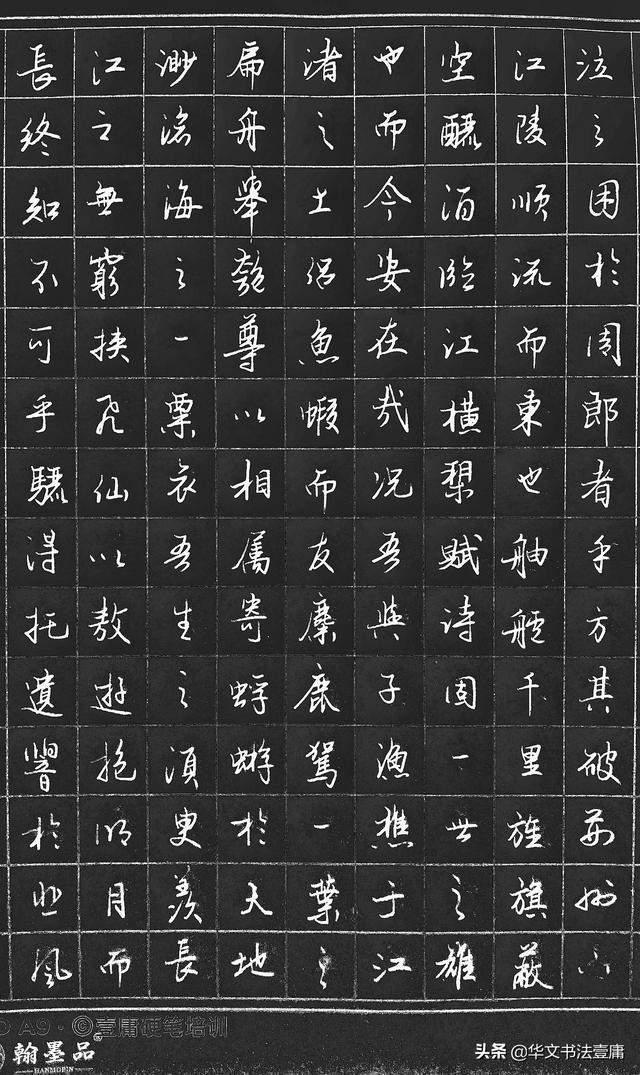 德之困於周郎者乎方其破荊州下
江陵順流而東也舳艫千里旌旗蔽
空釃酒臨江橫槊賦詩固一世之雄
也而今安在哉況吾與子漁樵于江
渚之上侶魚蝦而友麋鹿駕一葉之
扁舟舉匏尊以相屬寄蜉蝣於天地
渺滄海之一粟哀吾生之須臾羨長
江之無窮挾飛仙以敖遊抱明月而
長終知不可乎驟得托遺響於悲風
A9·©壹庸硬笔培训
翰墨品
HANMOPIN
头条 @华文书法壹庸